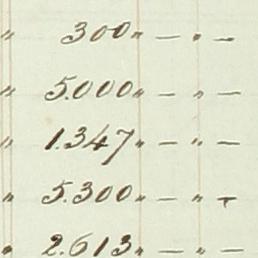 " 300 " — " —
" 5.000 " — " —
" 1.347 " — " —
" 5.300 " — " —
" 2.613 " — " —